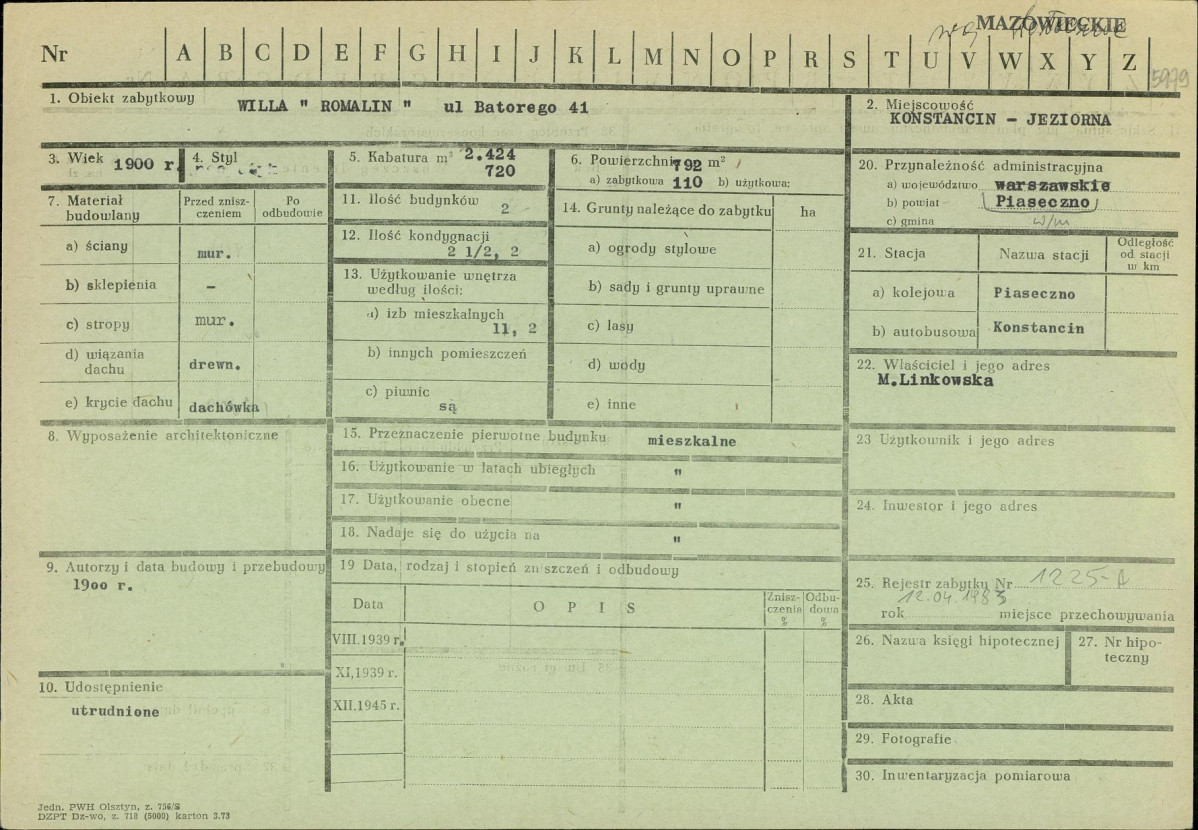 MAZOWIECKIE
Nr A B C D E F G H I J K L M N O P R S T U V W X Y Z
5979
1. Obiekt zabytkowy WILLA " ROMALIN " ul Batorego 41
2. Miejscowość
KONSTANCIN - JEZIORNA
3. Wiek 1900 r.
4. Styl
5. Kabatura m³ 2.424
720
6. Powierzchnia 792 m²
a) zabytkowa 110 b) użytkowa:
7. Materiał budowlany
Przed zniszczeniem
Po odbudowie
a) ściany mur.
b) sklepienia -
c) stropy mur.
d) wiązania dachu drewn.
e) krycie dachu dachówka
8. Wyposażenie architektoniczne
9. Autorzy i data budowy i przebudowy
19oo r.
10. Udostępnienie
utrudnione
11. Ilość budynków 2
12. Ilość kondygnacji
2 1/2, 2
13. Użytkowanie wnętrza
według ilości:
a) izb mieszkalnych
11, 2
b) innych pomieszczeń
c) piwnic
są
14. Grunty należące do zabytku ha
a) ogrody stylowe
b) sady i grunty uprawne
c) lasy
d) wody
e) inne
15. Przeznaczenie pierwotne budynku mieszkalne
16. Użytkowanie w latach ubiegłych "
17. Użytkowanie obecne "
18. Nadaje się do użycia na "
19 Data, rodzaj i stopień zniszczeń i odbudowy
Data
O P I S
Zniszczenia %
Odbudowa %
VIII.1939 r.
XI,1939 r.
XII.1945 r.
20. Przynależność administracyjna
a) województwo warszawskie
b) powiat Piaseczno
c) gmina w/m
21. Stacja
Nazwa stacji
Odległość od stacji w km
a) kolejowa Piaseczno
b) autobusowa Konstancin
22. Właściciel i jego adres
M.Linkowska
23 Użytkownik i jego adres
24. Inwestor i jego adres
25. Rejestr zabytku Nr 1225-A
12.04.1983
rok miejsce przechowywania
26. Nazwa księgi hipotecznej
27. Nr hipoteczny
28. Akta
29. Fotografie
30. Inwentaryzacja pomiarowa
Jedn. PWH Olsztyn, z. 756/S
DZPT Dz-wo, z. 718 (5000) karton 3.73